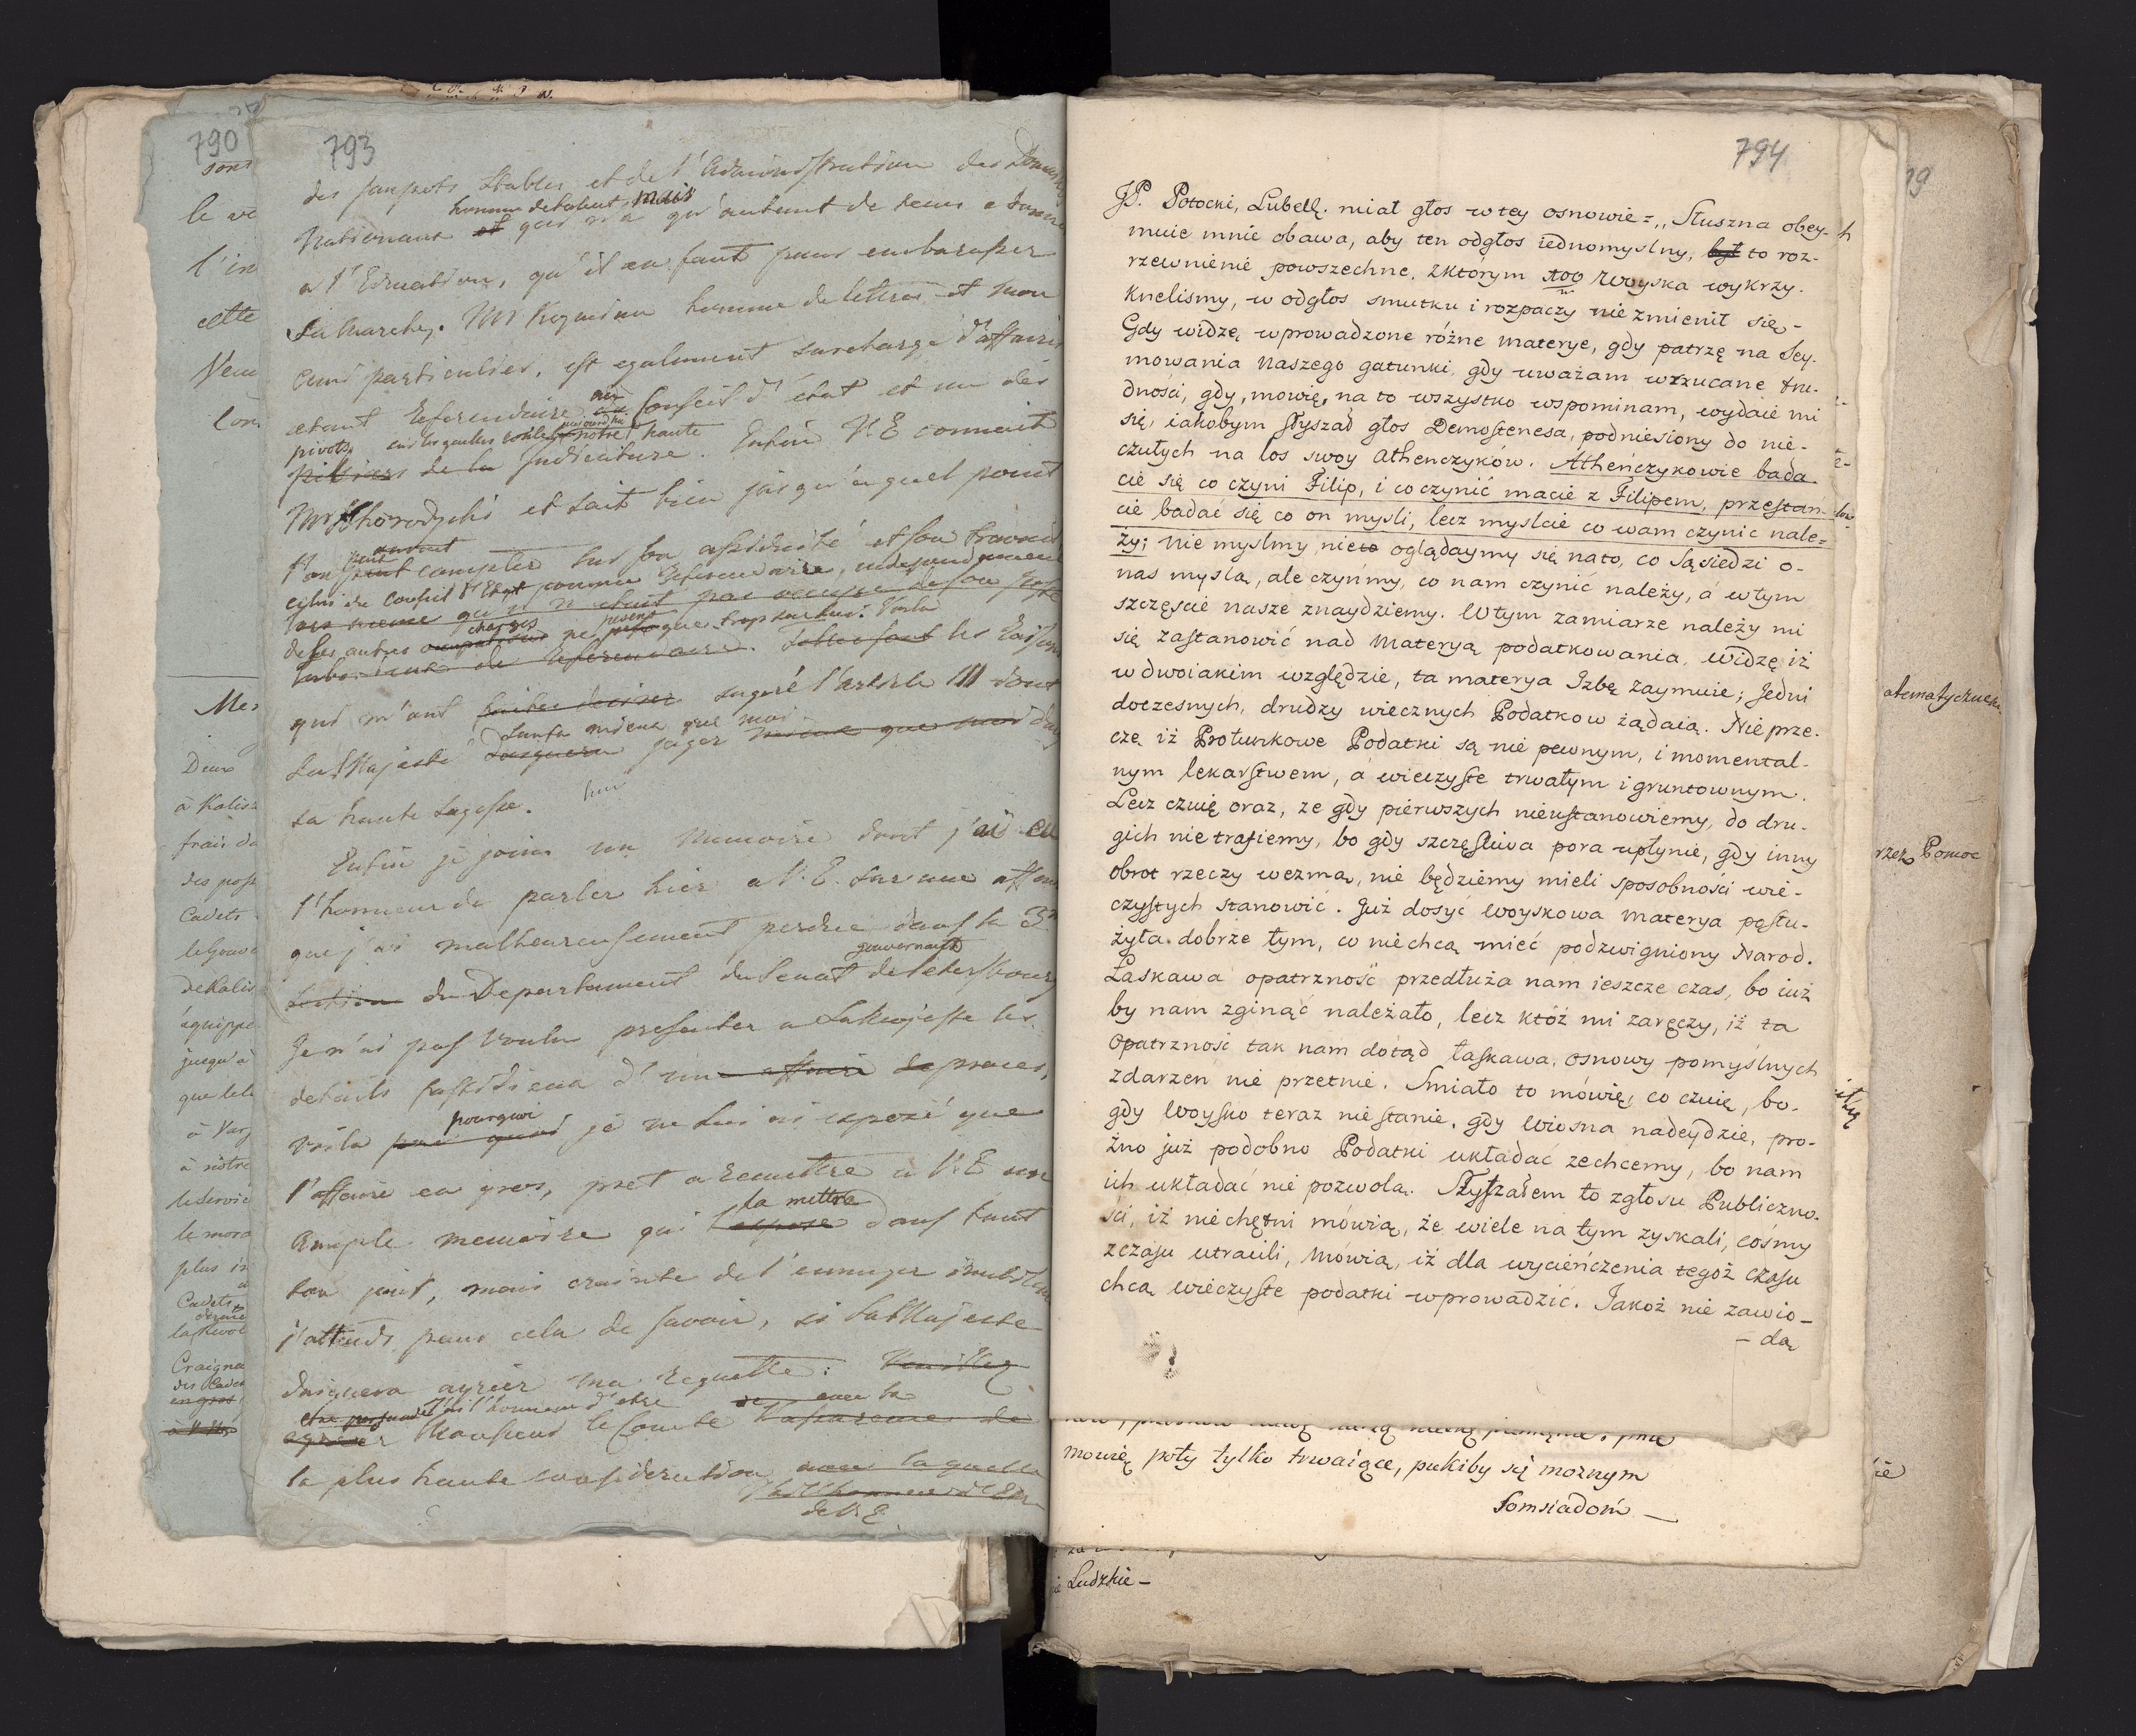 790
sont
le ve
l'in
cette
Veu
Con
Mes
Deux
à Kalis
frais de
des pos
Cadets
le Gouve
de Kalis
équippe
jusqu'à
que le
à Var
à nôtre
le servic
le mora
plus in
Cadets
Craigna
des Cadet
793
des impots stables et de l'Administration des Domai
homme de talent, mais
Nationaux et qui n'a qu'autant de tems a donner
a l'Education, qu'il en faut pour embarasser
sa marche. Mr homme de lettres et mon
ami particulier, est egalement surchargé d'affaires
etant Referendaire au Conseil d'état et un des
pivots, sur lesquels roule notre haute
piliers de la Judicature. Enfin V.E. connait
Mr Horodyski et sait bien jusqu'à quel point
l'on peut compter sur son assiduité et son travail
celui du Conseil d'Etat comme Referendaire, independament
de ses autres charges ne pesent que trop sur lui. Voila
les Raisons
qui m'ont sugeré l'article III dont
Sa Majesté juger mieux que moi dans
sa haute sagesse.
Enfin je joins un Memoire dont j'ai eu
l'honneur de parler hier a V.E. sur une affaire
que j'ai malheureusement perdue dans la 3me
gouvernants
Section du Departament du Senat de Petersbourg
Je n'ai pas voulu presenter a Sa Majeste les
details fastidieux d'une affaire de proces,
pourquoi
voila je ne lui ai exposé que
l'affaire en gros, pret a remettre a V.E. un
la mettra
ample memoire qui l'expose dans tout
son jour, mais crainte de l'ennuyer inutilem
j'attends pour cela de savoir, si Sa Majeste
daignera agréer ma Requette: Veuillez
j'ai l'honneur d'etre avec la
agreer Monsieur le Comte l'assurance de
la plus haute consideration avec laquelle
j'ai l'honneur d'etre
de V.E.
794
JP. Potocki, Lubell. miał głos w tey osnowie =,, Słuszna obey-
muie mnie obawa, aby ten odgłos iednomyslny, był to roz-
rzewnienie powszechne, z którym 100 Woyska wykrzy-
knelismy, w odgłos smutku i rozpaczy nie zmienił się -
Gdy widzę wprowadzone różne materye, gdy patrzę na Sey-
mowania naszego gatunki, gdy uważam wrzucane tru-
dności, gdy, mowię, na to wszystko wspominam, wydaie mi
się, iakobym słyszał głos Demostenesa, podniesiony do nie-
czułych na los swoy Athenczyków. Atheńczykowie bada-
cie się co czyni Filip, i co czynić macie z Filipem, przestań-
cie badać się co on mysli, lecz myslcie co wam czynic nale=
ży; nie myslmy, nie to oglądaymy się na to, co Sąsiedzi o-
nas myslą, ale czyńmy, co nam czynić należy, a w tym
szczęscie nasze znaydziemy. W tym zamiarze należy mi
się zastanowić nad Materyą podatkowania. Widzę iż
w dwoiakim względzie, ta materya Izbę zaymuie; Jedni
doczesnych, drudzy wiecznych Podatkow żądaią. Nie prze-
czę iż Protunkowe Podatki są nie pewnym, i momental-
nym lekarstwem, a wieczyste trwałym i gruntownym.
Lecz czuię oraz, ze gdy pierwszych nieustanowiemy, do dru-
gich nie trafiemy, bo gdy szczęsliwa pora upłynie, gdy inny
obrot rzeczy wezmą, nie będziemy mieli sposobności wie-
czystych stanowić. Już dosyć woyskowa materya posłu-
żyła dobrze tym, co niechcą mieć podzwigniony Narod.
Łaskawa opatrzność przedłuża nam ieszcze czas, bo iuż
by nam zginąć należało, lecz któż mi zaręczy, iż ta
Opatrzność tak nam dotąd łaskawa, osnowy pomyślnych
zdarzen nie przetnie. Smiało to mówię, co czuię, bo-
gdy Woysko teraz nie stanie, gdy Wiosna nadeydzie, pro-
żno już podobno Podatki układać zechcemy, bo nam
ich układać nie pozwolą. Słyszałem to z głosu Publiczno-
ści, iż niechętni mówią, że wiele na tym zyskali, cośmy
z czasu utracili, Mówią, iż dla wycieńczenia tegoż czasu
chcą wieczyste podatki wprowadzić. Jakoż nie zawio-
- dą
mowię poty tylko trwaiące, pukiby się moznym
Somsiadom —
Ludzkie -
rzez Pomoc